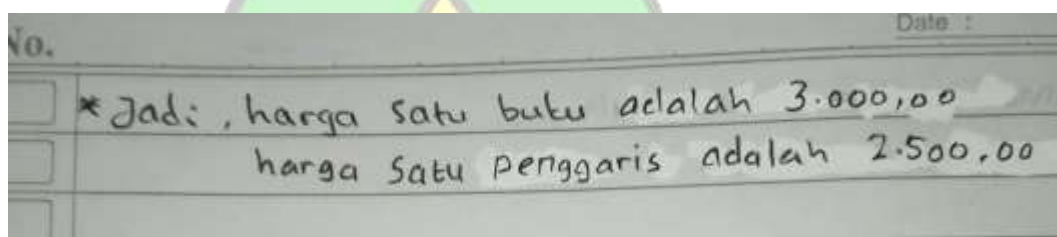 No.
Date :
* Jadi, harga satu buku adalah 3.000,00
harga satu penggaris adalah 2.500,00